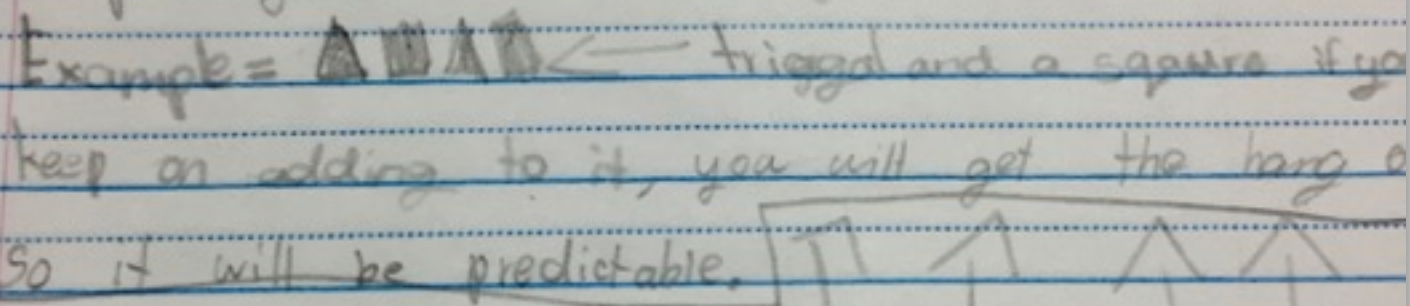 Example = trioggal and a sqaure if yo
keep on adding to it, you will get the hang o
So it will be predictable.